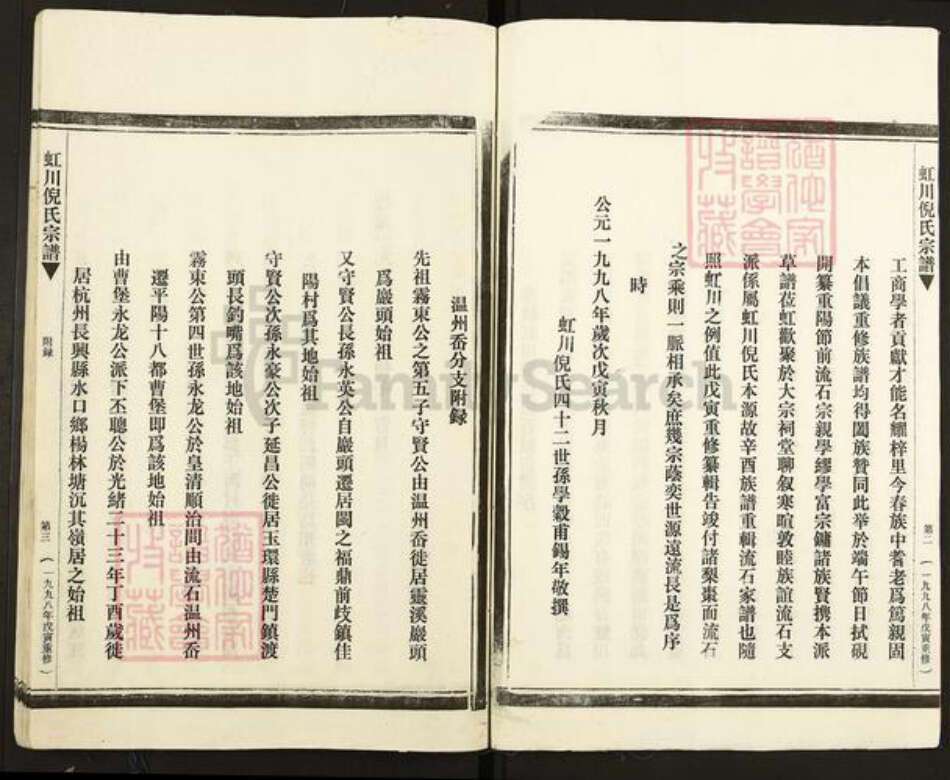 虹川倪氏宗譜
第二
(一九九八年戊寅重修)
工商學者貢獻才能名耀梓里今春族中耆老爲篤親固
本倡議重修族譜均得闔族贊同此举於端午節日拭硯
開纂重陽節前流石宗親學繆學富宗鏞諸族賢携本派
草譜莅虹歡聚於大宗祠堂聊叙寒暄敦睦族誼流石支
派係屬虹川倪氏本源故辛酉族譜重輯流石家譜也隨
照虹川之例值此戊寅重修纂輯告竣付諸梨棗而流石
之宗乘則一脈相承矣庶幾宗蔭奕世源遠流長是爲序
時
公元一九九八年歲次戊寅秋月
虹川倪氏四十二世孫學穀甫錫年敬撰
温州岙分支附録
先祖霧東公之第五子守賢公由温州岙徙居靈溪巖頭
爲巖頭始祖
又守賢公長孫永英公自巖頭遷居閩之福鼎前歧鎮佳
陽村爲其地始祖
守賢公次孫永豪公次子延昌公徙居玉環縣楚門鎮渡
頭長釣嘴爲該地始祖
霧東公第四世孫永龙公於皇清順治間由流石温州岙
遷平陽十八都曹堡即爲該地始祖
由曹堡永龙公派下丕聰公於光緒二十三年丁酉歲徙
居杭州長興縣水口鄉楊林塘沉其嶺居之始祖
虹川倪氏宗譜
附録
第三
(一九九八年戊寅重修)
FamilySearch